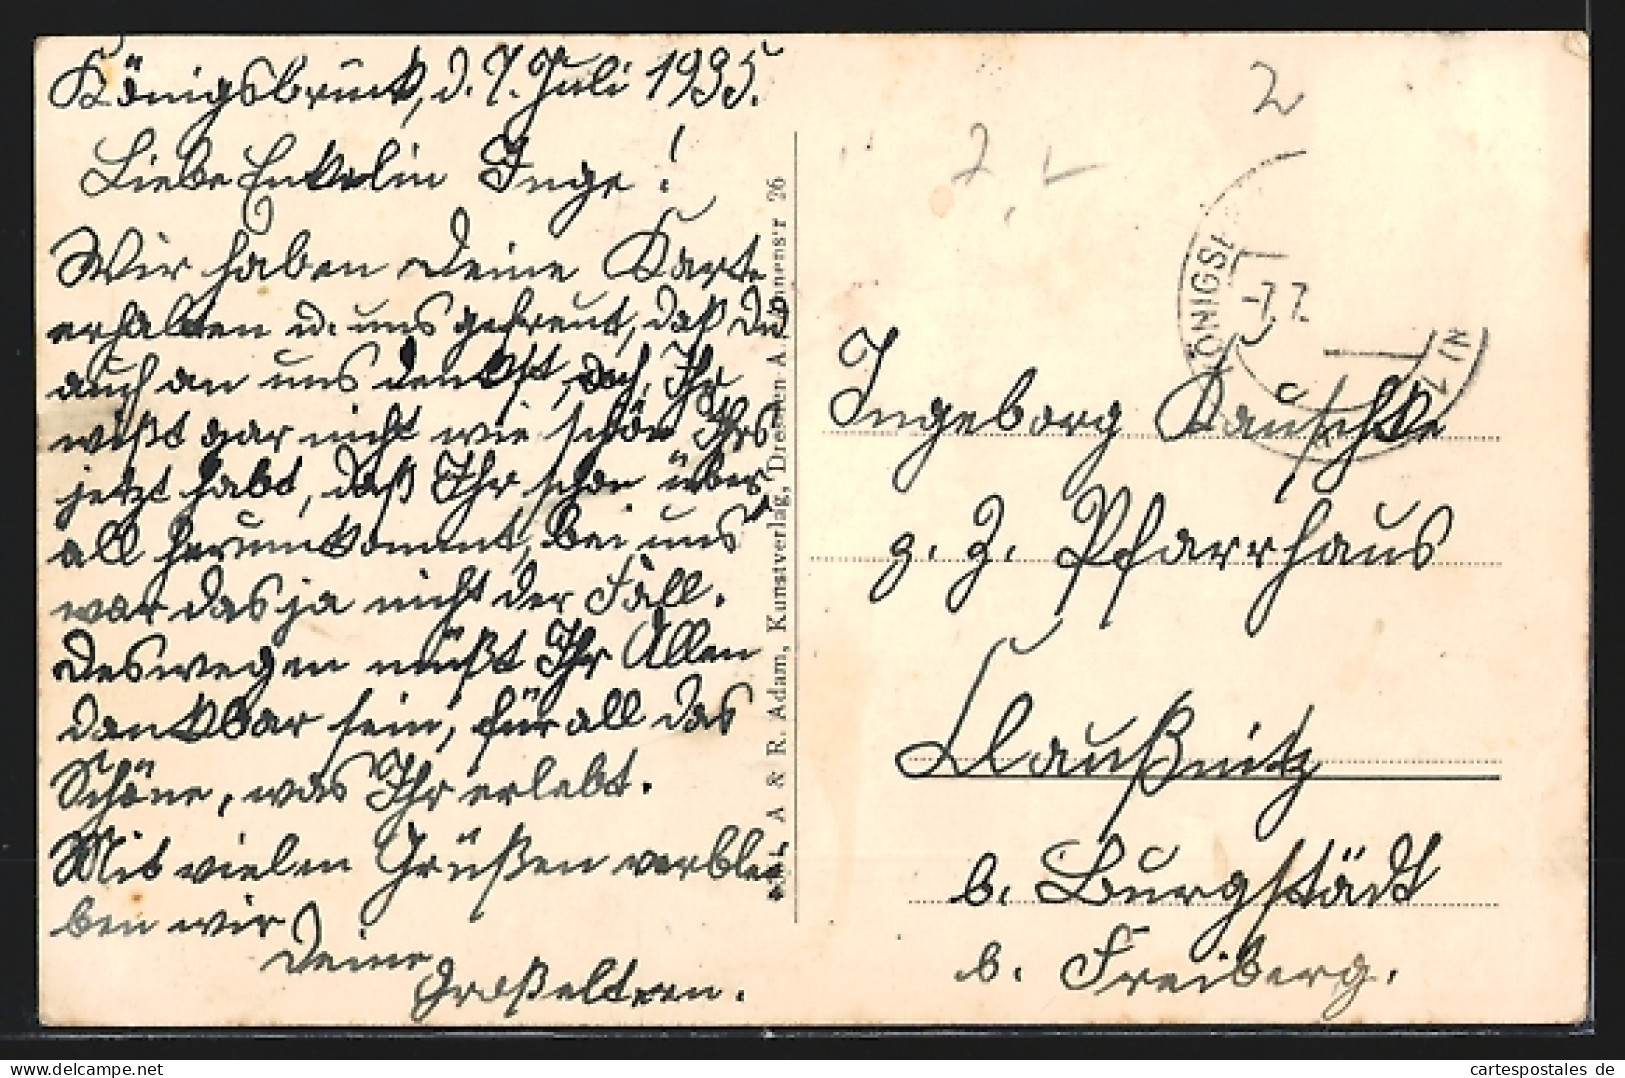 Königsbrück, d. 7. Juli 1935.
Liebe Enkelin Inge!
Wir haben Deine Karte
erhalten u. uns gefreut, daß Du
auch an uns denkst, doch, Ihr
wißt gar nicht wie schön Ihrs
jetzt habt, daß Ihr schon über-
all herumkommt, bei uns
war das ja nicht der Fall.
Deswegen müßt Ihr Allen
dankbar sein, für all das
Schöne, was Ihr erlebt.
Mit vielen Grüßen verblei
ben wir
Deine
Großeltern.
A & R. Adam, Kunstverlag, Dresden A. 26
2
KÖNIGSB
-7.7.
Ingeborg Kauschke
z. Z. Pfarrhaus
Claußnitz
b. Burgstädt
b. Freiberg.
cartespostales de